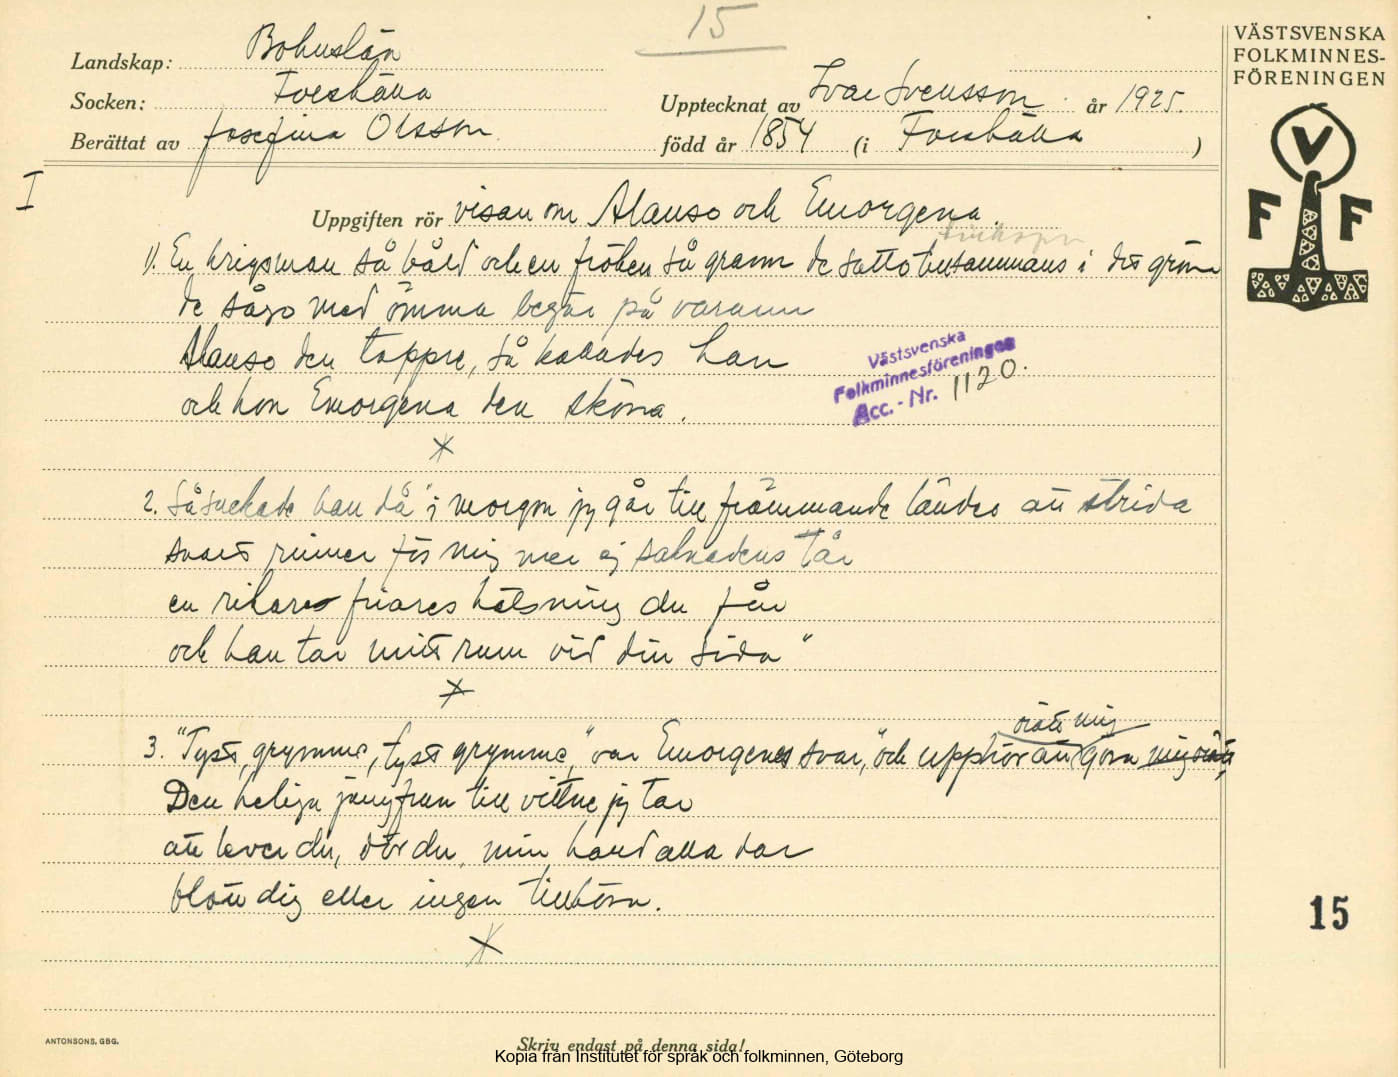 15
Landskap: Bohuslän
Socken: Foreshälla
Berättat av Josefina Olsson
Upptecknat av Ivar Svensson år 1925.
född år 1854 (i Foreshälla )
VÄSTSVENSKA
FOLKMINNES-
FÖRENINGEN
V
F F
I
Uppgiften rör visan om Alanso och Emorgena.
1). En krigsman så båld och en fröken så grann de sutto tillsammans i det gröna
de sågo med ömma begär på varann
Alanso den tappre, så kallades han
och hon Emorgena den sköna.
Västsvenska
Folkminnesföreningen
Acc. - Nr. 1120.
2. Så suckade han då "i morgon jag går till främmande länder att strida
snart rinner för mig mer ej saknadens tår
en rikares friares hälsning du får
och han tar mitt rum vid din sida"
orätt mig
3. "Tyst, grymme, tyst grymme," var Emorgenes svar, "och upphör att göra mig orätt,
Den heliga jungfrun till vittne jag tar
att lever du, dör du, min hand alla dar
blott dig eller ingen tillhöra.
15
ANTONSONS, GBG.
Skriv endast på denna sida!
Kopia från Institutet för språk och folkminnen, Göteborg